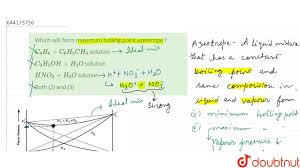 644173756
Which will form maximum boiling point azeotrope?
C₆H₆ + C₆H₅CH₃ solution → Ideal mix
C₂H₅OH + H₂O solution
HNO₃ + H₂O solution → H⁺ + NO₃⁻ + H₂O
Both (2) and (3)
H₃O⁺ + NO₃⁻
strong
Ideal mix
Azeotrope - A liquid mixture
that has a constant
boiling point and
same composition in
liquid and vapour form
(i) minimum boiling
(ii) maximum
vapour pressure ↓
doubtnut